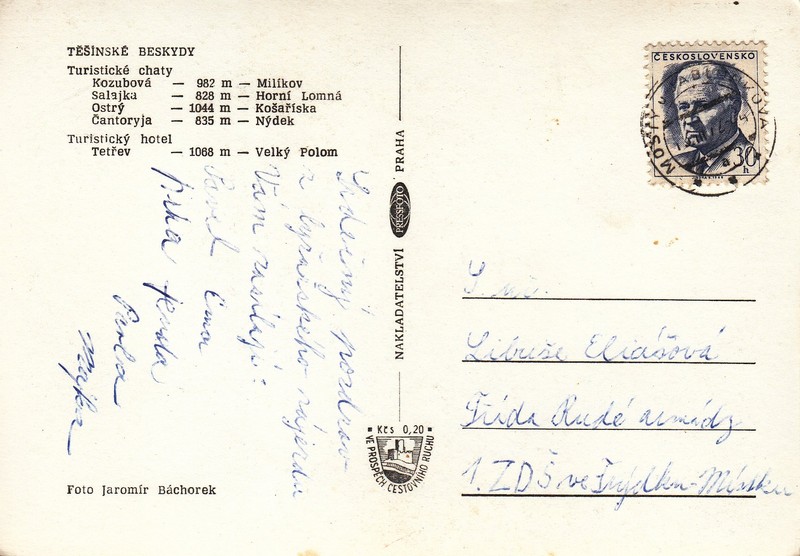 TĚŠÍNSKÉ BESKYDY
Turistické chaty
Kozubová — 982 m — Milíkov
Salajka — 828 m — Horní Lomná
Ostrý — 1044 m — Košařiska
Čantoryja — 835 m — Nýdek
Turistický hotel
Tetřev — 1068 m — Velký Polom
Srdečný pozdrav
z lyžařského zájezdu
Vám zasílají:
Pavel
Jirka
Pavla
Majka
Foto Jaromír Báchorek
NAKLADATELSTVÍ PRESSFOTO PRAHA
Kčs 0,20
VE PROSPĚCH CESTOVNÍHO RUCHU
ČESKOSLOVENSKO
30 h
MOSTY U JABLUNKOVA
S. uč.
Libuše Eliášová
Třída Rudé armády
1. ZDŠ ve Frýdku-Místku